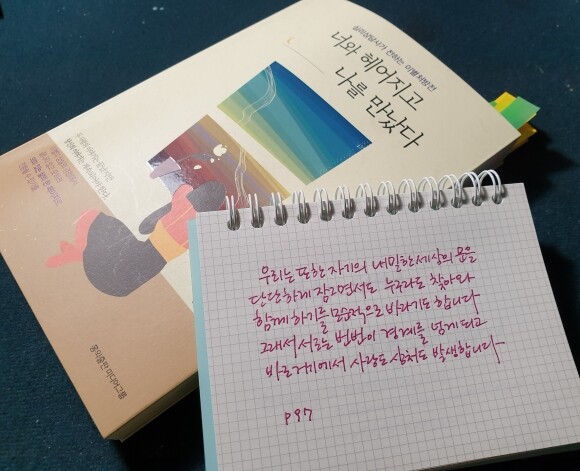 심리상담사가 전하는 이별처방전
너와 헤어지고
나를 만났다
우리는 또한 자기의 내밀한 세상의 문을
단단하게 잠그면서도 누구라도 찾아와
함께 하기를 모순적으로 바라기도 합니다
그래서 서로는 번번이 경계를 넘게 되고
바로 거기에서 사랑도 상처도 발생합니다
p 97